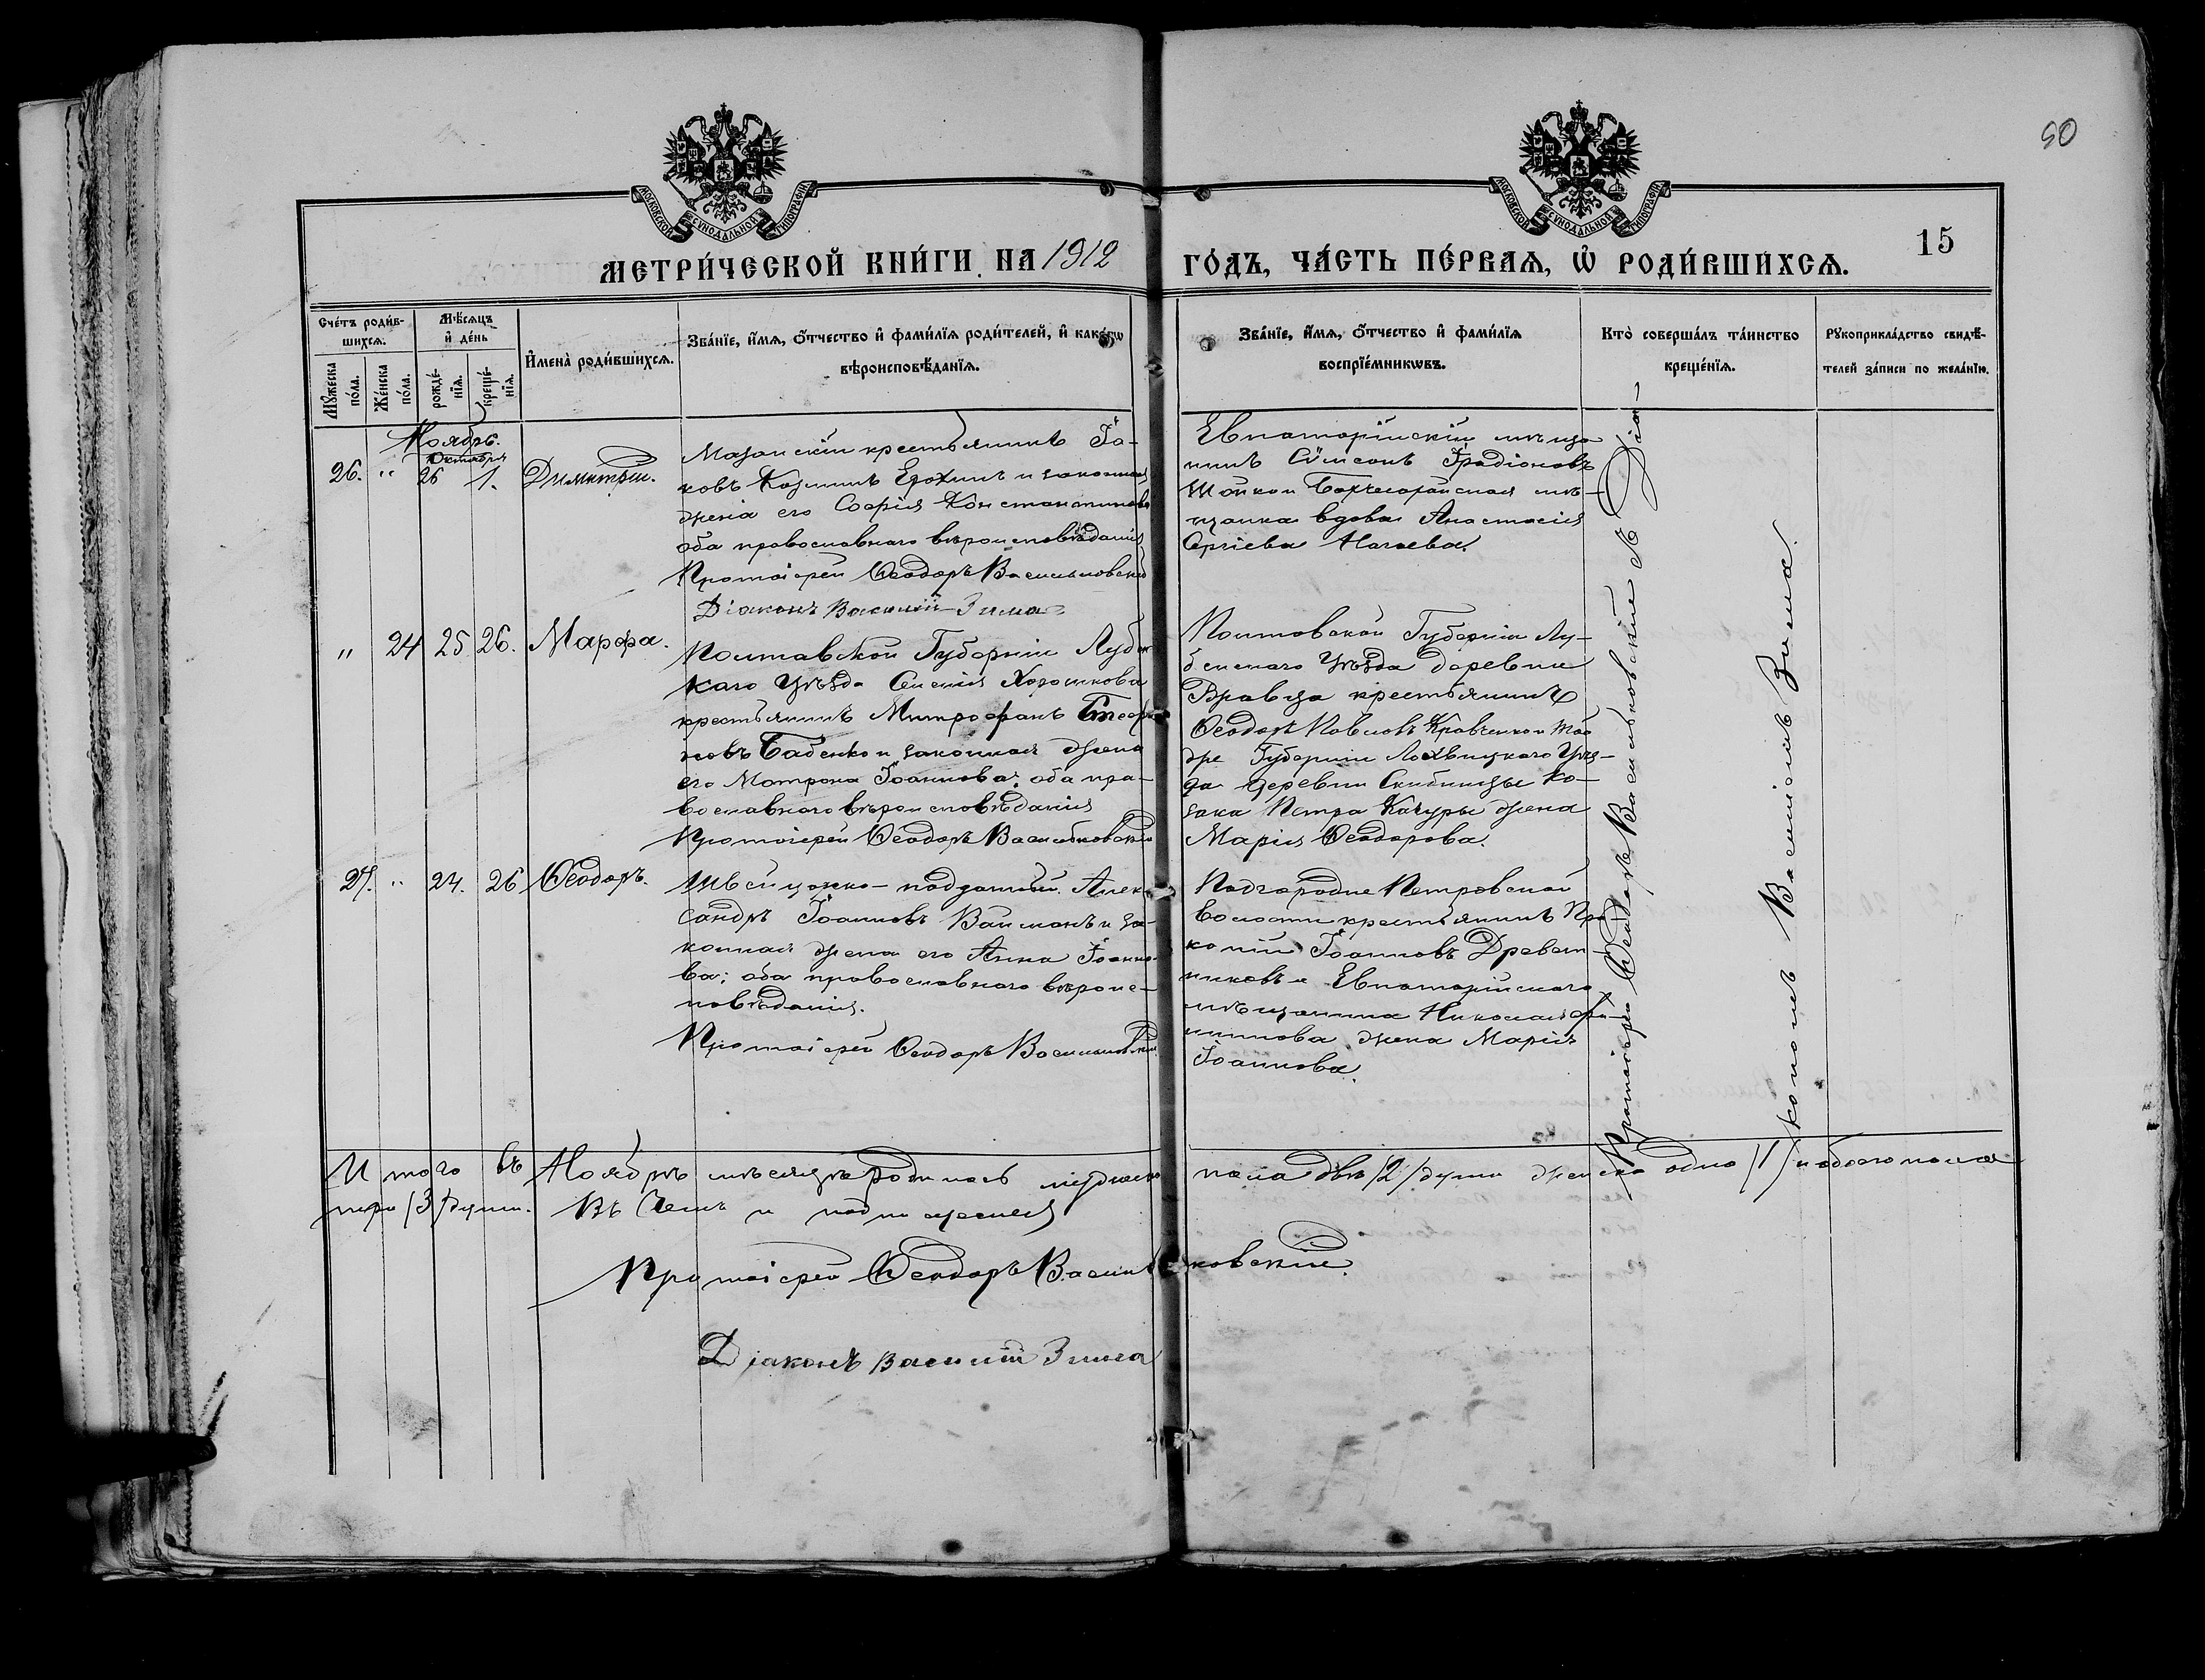 50
МОСКОВСКОЙ СѴНОДАЛЬНОЙ ТИПОГРАФІИ
МОСКОВСКОЙ СѴНОДАЛЬНОЙ ТИПОГРАФІИ
МЕТРИ́ЧЕСКОЙ КНИ́ГИ НА 1912 ГО́ДЪ, ЧА́СТЬ ПЕ́РВАѦ, Ѡ҆ РОДИ́ВШИХСѦ. 15
Сче́тъ роди́в-
шихсѧ.
Мꙋ́жеска по́ла.
Же́нска по́ла.
Мѣ́сѧцъ
и҆ де́нь
рожде́-
нїѧ.
креще́-
нїѧ.
И҆мена̀ роди́вшихсѧ.
Зва́нїе, и҆́мѧ, ѻ҆́тчество и҆ фами́лїѧ роди́телей, и҆ како́гѡ
вѣроисповѣ́данїѧ.
Зва́нїе, и҆́мѧ, ѻ҆́тчество и҆ фами́лїѧ
воспрїе́мникѡвъ.
Кто̀ соверша́лъ та́инство
креще́нїѧ.
Рꙋкоприкла́дство свидѣ́-
телей за́писи по жела́нїю.
Ноябрь.
Октября
26. " 26 1. Димитрій.
крестьянинъ Іа-
ковъ Козминъ Ерохинъ и законная
жена его Софія Константинова
оба православнаго вѣроисповѣданія
Протоіерей Ѳеодоръ Васильковскій
Діаконъ Василій Зима
Евпаторійскій мѣща-
нинъ Сѵмеонъ Иродіоновъ
мѣ-
щанка вдова Анастасія
Сергіева
" 24 25 26. Марфа.
Полтавской Губерніи Лубен
каго Уѣзда Хорошкова
крестьянинъ Митрофанъ
новъ Бабенко и законная жена
его Матрона Іоаннова; оба пра-
вославнаго вѣроисповѣданія
Протоіерей Ѳеодоръ Васильковскій
Полтавской Губерніи Лу-
бенскаго Уѣзда деревни
крестьянинъ
Ѳеодоръ Павловъ Кравченко и той
же Губерніи Лохвицкаго Уѣз-
да деревни Ко-
зака Петра Качуры жена
Марія Ѳеодорова.
27. " 24. 26 Ѳеодоръ.
Швейцарско-подданный Алек
сандръ Іоанновъ Вайсманъ и за-
конная жена его Анна Іоанно-
ва; оба православнаго вѣроис-
повѣданія.
Протоіерей Ѳеодоръ Васильковскій
Подгородне Петровской
волости крестьянинъ Про-
копій Іоанновъ Древет-
никовъ и Евпаторійскаго
мѣщанина Николая Фи-
липпова жена Марія
Іоаннова.
Протоіерей Ѳеодоръ Васильковскій съ Діа-
кономъ Василіемъ Зима.
И того въ Ноябрѣ мѣсяцѣ родилось мужеска пола двѣ /2/ души женска одна /1/ и обоего пола
три /3/ души. Въ чемъ и подписуемся
Протоіерей Ѳеодоръ Васильковскій.
Діаконъ Василій Зима